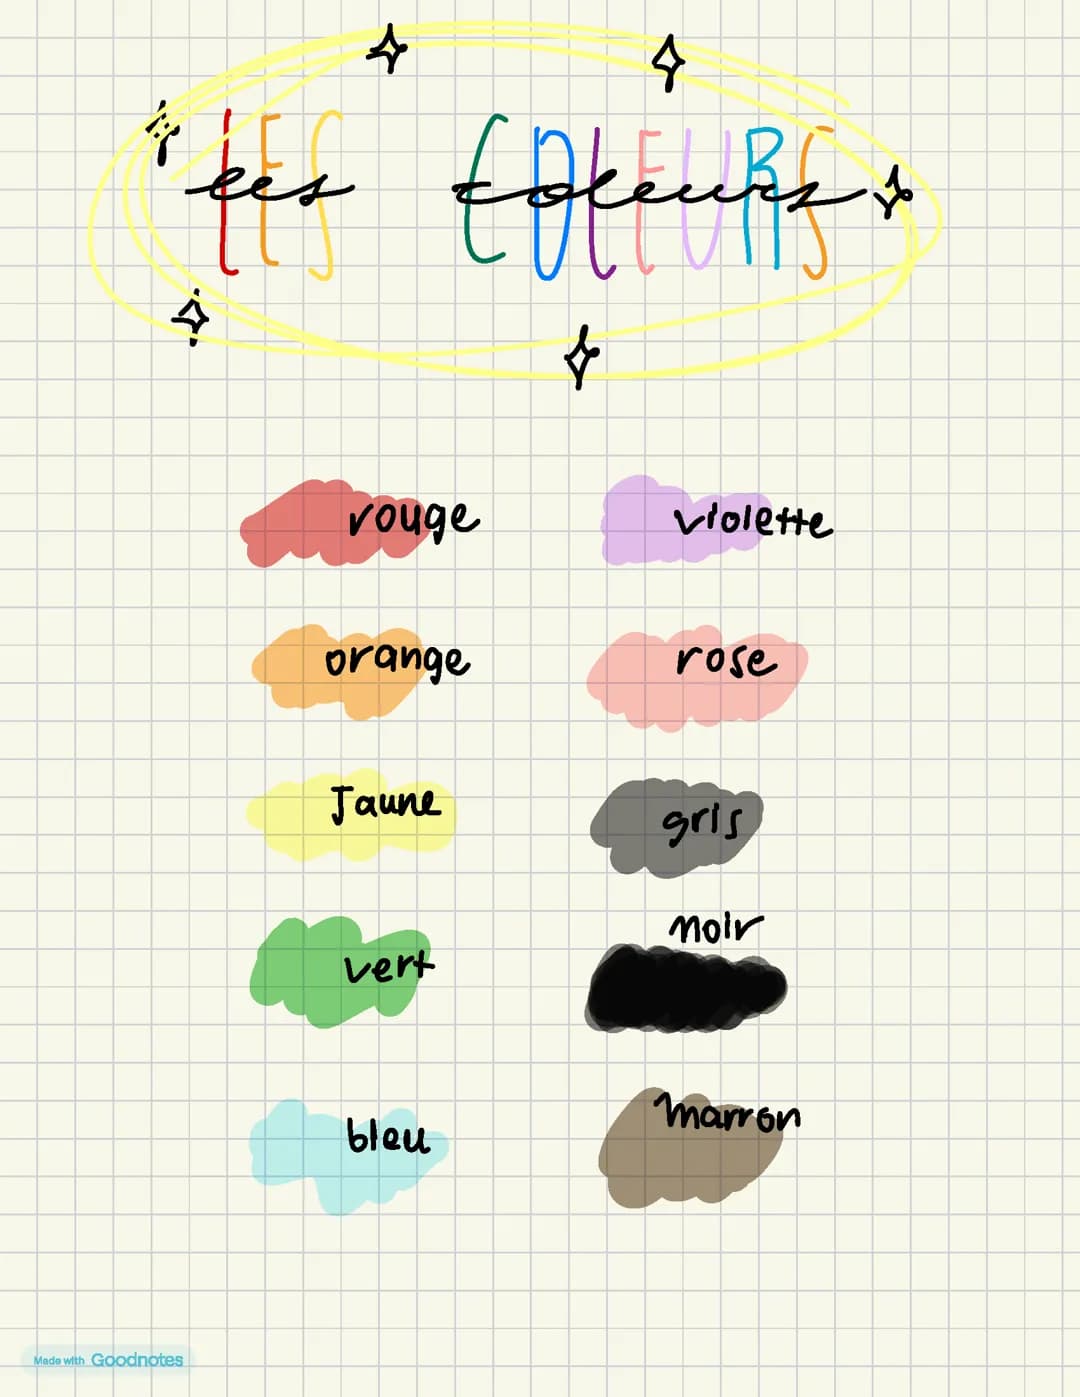 LES COLEURS
les coleurs
rouge
violette
orange
rose
Jaune
gris
vert
noir
bleu
marron
Made with Goodnotes